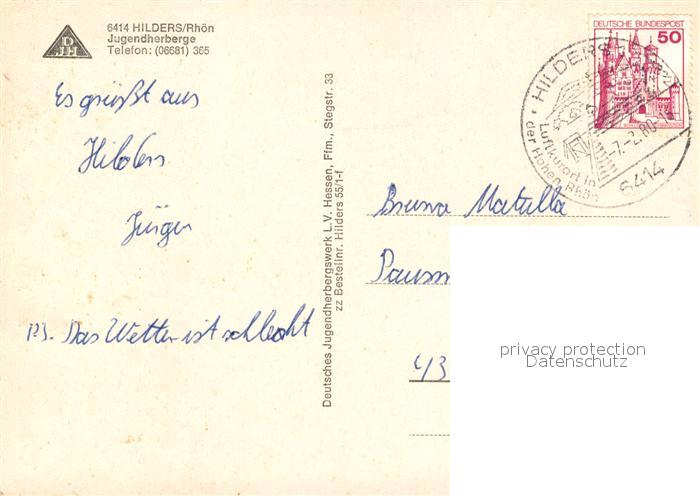 DJH
6414 HILDERS/Rhön
Jugendherberge
Telefon: (06681) 365
Es grüßt aus
Hilders
Jürgen
P.S. Das Wetter ist schlecht
Deutsches Jugendherbergswerk L.V. Hessen, Ffm., Stegstr. 33
zz Bestellnr. Hilders 55/1-f
DEUTSCHE BUNDESPOST
50
HILDERS
-7.-2.80
Luftkurort in
der Hohen Rhön
6414
Bruna Matulla
43
privacy protection
Datenschutz